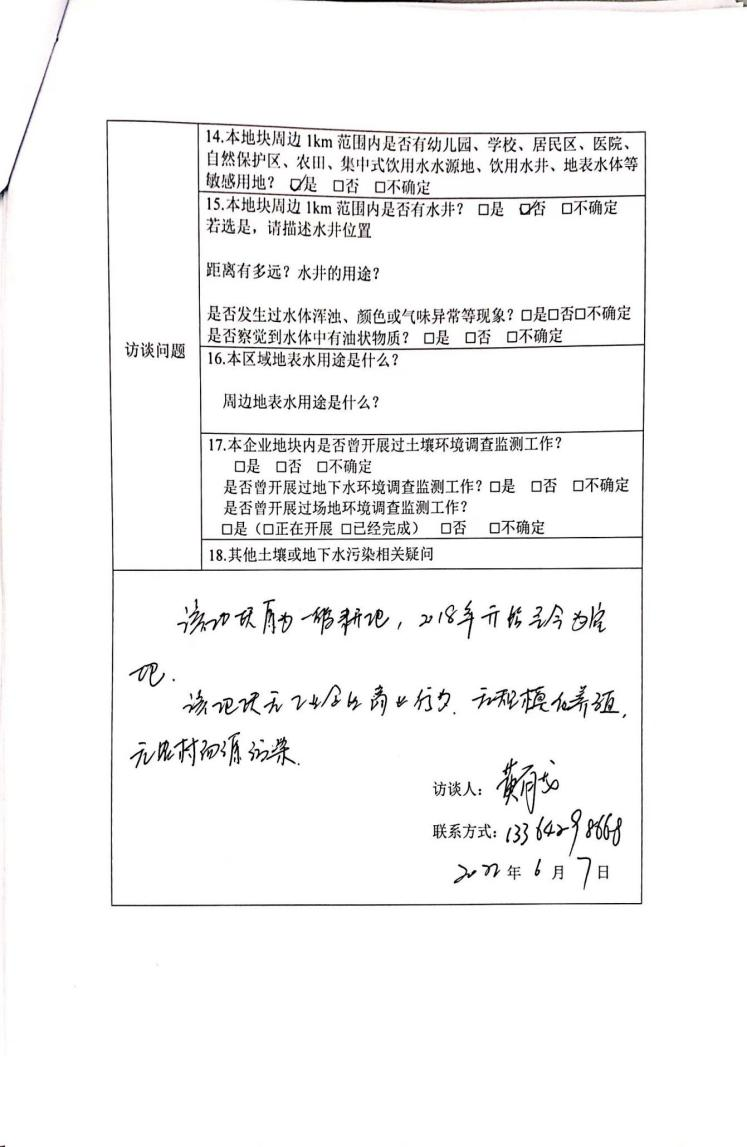 14.本地块周边 1km 范围内是否有幼儿园、学校、居民区、医院、
自然保护区、农田、集中式饮用水水源地、饮用水井、地表水体等
敏感用地？ ☑是 □否 □不确定
15.本地块周边 1km 范围内是否有水井？ □是 ☑否 □不确定
若选是，请描述水井位置
距离有多远？水井的用途？
是否发生过水体浑浊、颜色或气味异常等现象？□是□否□不确定
是否察觉到水体中有油状物质？ □是 □否 □不确定
访谈问题
16.本区域地表水用途是什么？
周边地表水用途是什么？
17.本企业地块内是否曾开展过土壤环境调查监测工作？
□是 □否 □不确定
是否曾开展过地下水环境调查监测工作？□是 □否 □不确定
是否曾开展过场地环境调查监测工作？
□是（□正在开展 □已经完成） □否 □不确定
18.其他土壤或地下水污染相关疑问
该地块原为一般耕地，2018年开始至今为空
地.
该地块无工业企业商业行为.无规模化养殖,
无农村面源污染.
访谈人：黄
联系方式：13364298668
2022年6月7日